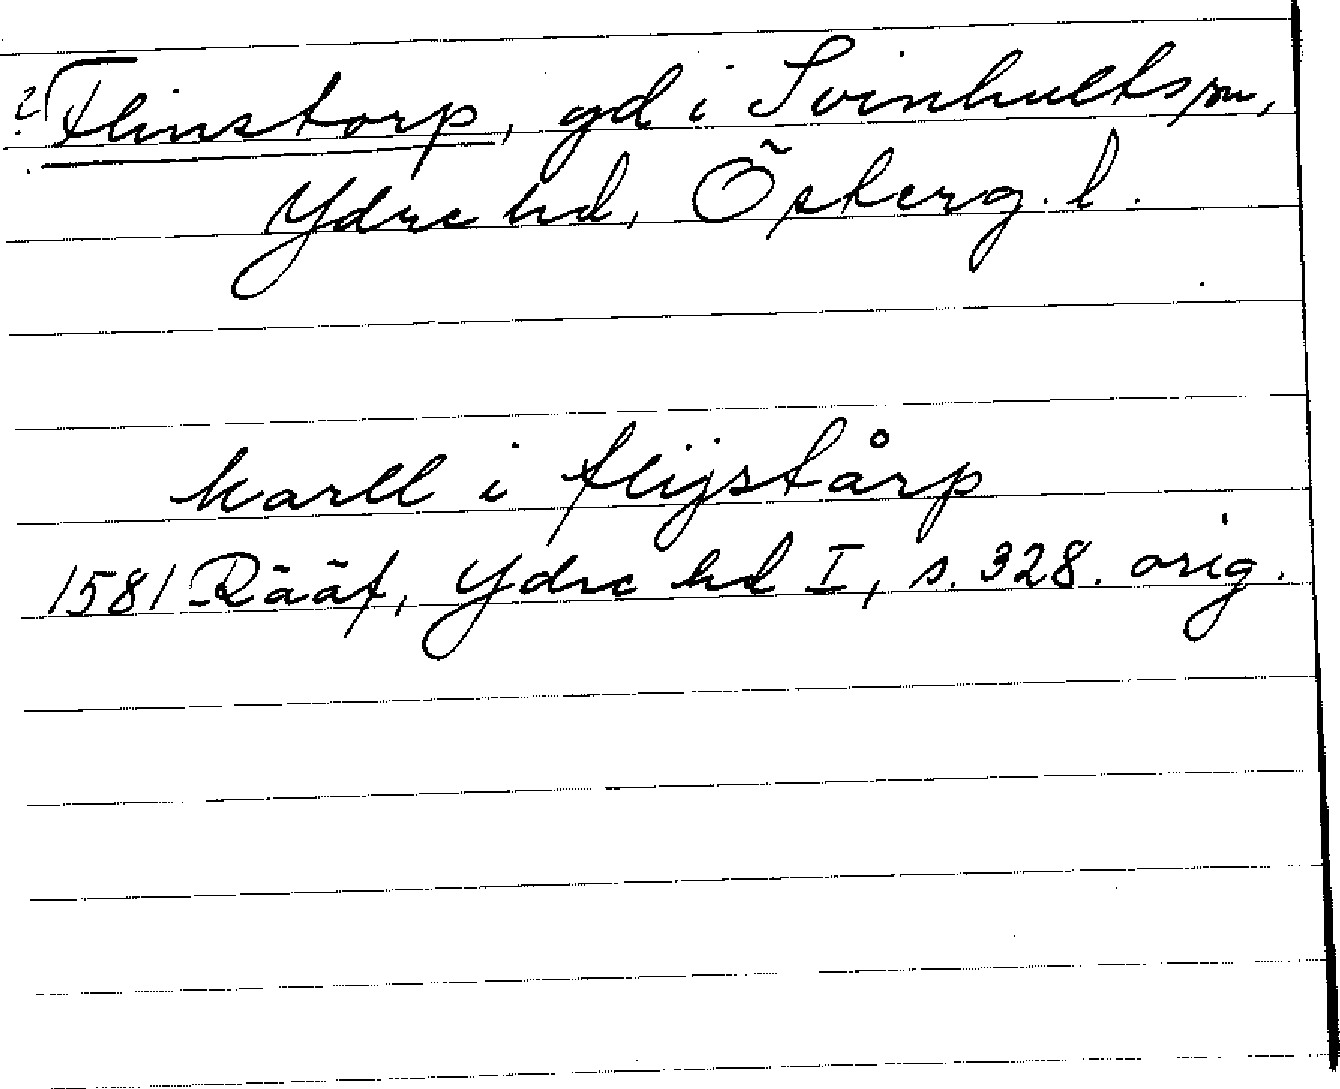 ? Flinstorp, gd i Svinhults sn,
Ydre hd, Österg. l.
karll i flijstårp
1581 Rääf, Ydre hd I, s. 328. orig.